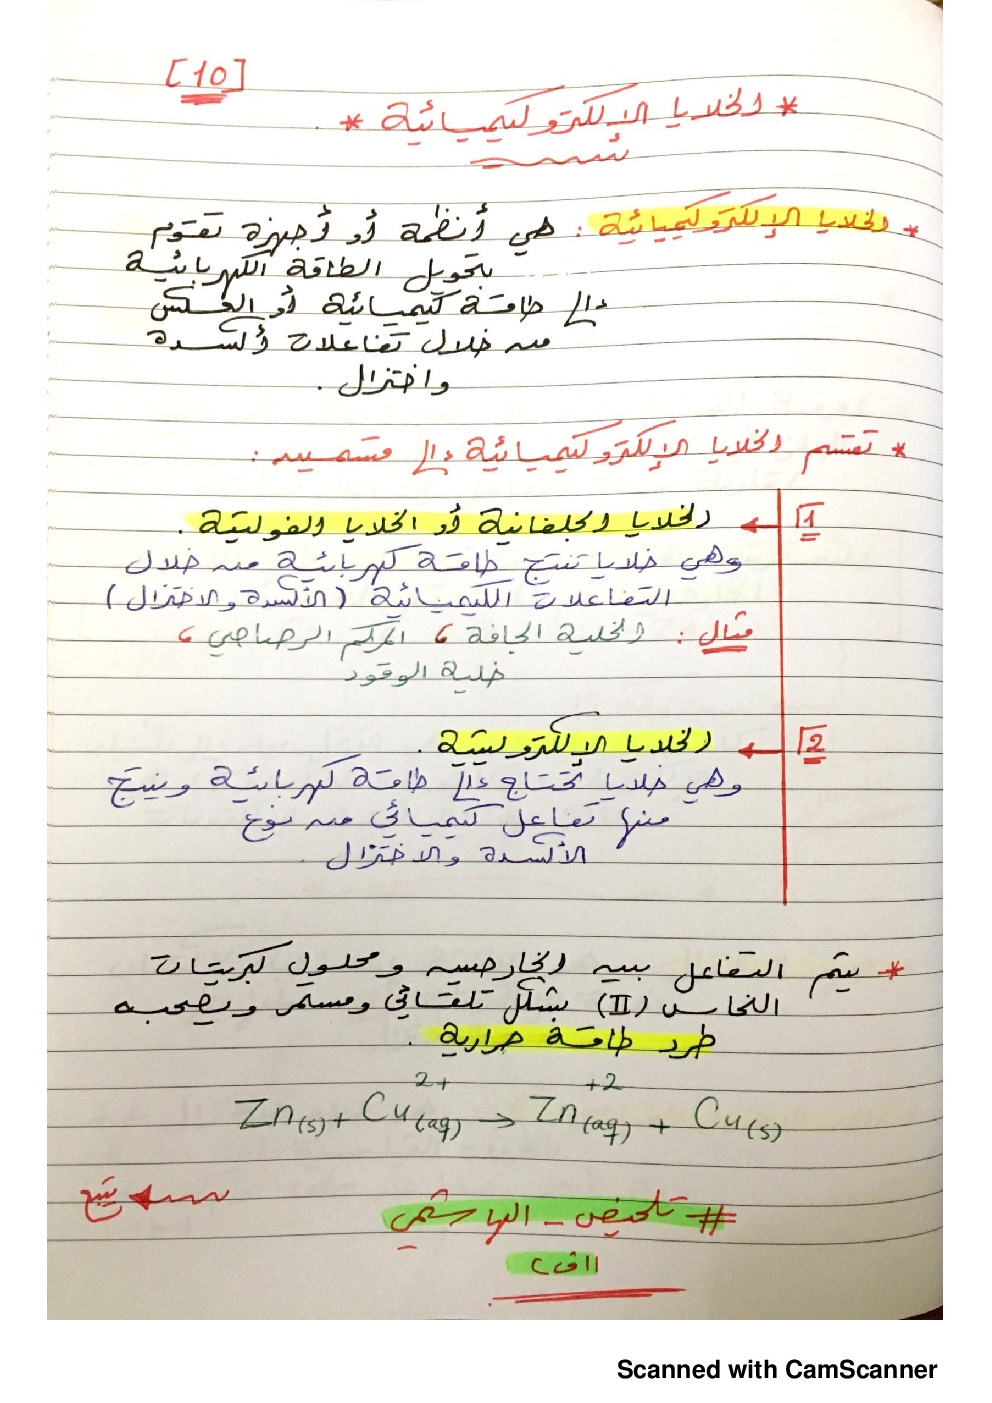 [10]
* الخلايا الإلكتروكيميائية *
* الخلايا الإلكتروكيميائية : هي أنظمة أو أجهزة تقوم
بتحويل الطاقة الكهربائية
إلى طاقة كيميائية أو العكس
من خلال تفاعلات أكسدة
واختزال .
* تقسم الخلايا الإلكتروكيميائية إلى قسمين :
1 الخلايا الجلفانية أو الخلايا الفولتية .
وهي خلايا تنتج طاقة كهربائية من خلال
التفاعلات الكيميائية (الأكسدة والاختزال)
مثال : الخلية الجافة ، المركم الرصاصي ،
خلية الوقود
2 الخلايا الإلكتروليتية .
وهي خلايا تحتاج إلى طاقة كهربائية وينتج
منها تفاعل كيميائي من نوع
الأكسدة والاختزال .
* يتم التفاعل بين الخارصين ومحلول كبريتات
النحاس (II) بشكل تلقائي ومستمر ويصحبه
طرد طاقة حرارية .
Zn(s) + Cu2+(aq) → Zn+2(aq) + Cu(s)
يتبع
# تلخيص - الهاشمي
Scanned with CamScanner